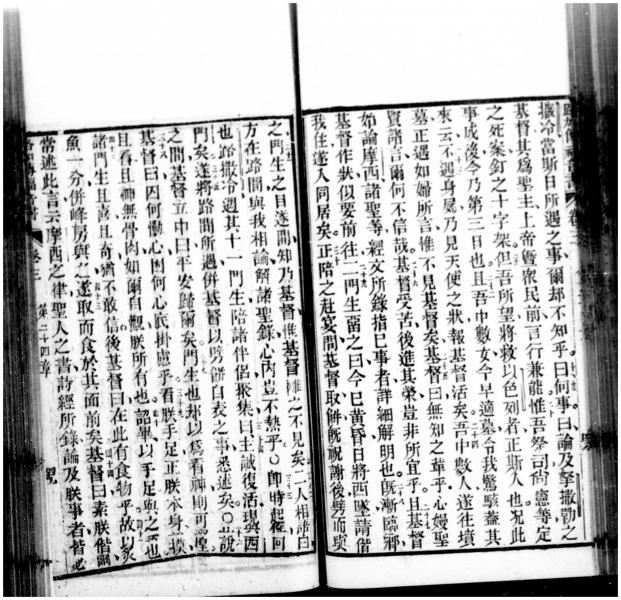 撒冷當斯日所遇之事爾却不知乎曰何事曰論及拏撒勒之
基督其爲聖主上帝曁衆民前言行兼能惟吾祭司尚憲等定
之死案釘之十字架但吾所望將救以色列者正斯人也况此
事成後今乃第三日也且吾中數女今早適墓令我驚駭蓋其
來云不遇身屍乃見天使之狀報基督活矣吾中數人遂往墳
墓正遇如婦所言惟不見基督矣基督曰無知之輩乎心嫚聖
賢諸言爾何不信哉基督受苦後進其榮豈非所宜乎且基督
始論摩西諸聖等經文所錄指己事者詳細解明也旣漸臨鄉
基督作狀似要前往二門生畱之曰今巳黄昏日將西墜請偕
我住遂入同居矣正陪之赴宴間基督取餅旣祝謝後劈而與
之門生之目遂間知乃基督惟基督
之不見矣二人相語曰
方在路間與我相論解諸聖錄心内豈不熱乎〇卽時起程回
也路撒冷遇其十一門生陪諸伴侶聚集曰主誠復活現與西
門矣遂將路間所遇併基督以劈餅自表之事悉述矣〇且說
之間基督立中曰平安歸爾矣門生也却以爲看神
基督曰因何慟心因何心底掛慮乎看朕手足正朕本身
且看且神無骨肉如爾自觀朕所有也詔畢以手足與之
諸門生且喜且奇猶不敢信後基督曰在此有食物乎故以炙
魚一分併峰房與之遂取而食於其面前矣基督曰素朕偕爾
常述此言云摩西之律聖人之書詩經所錄論及朕事者皆必
卷三
第二十四章